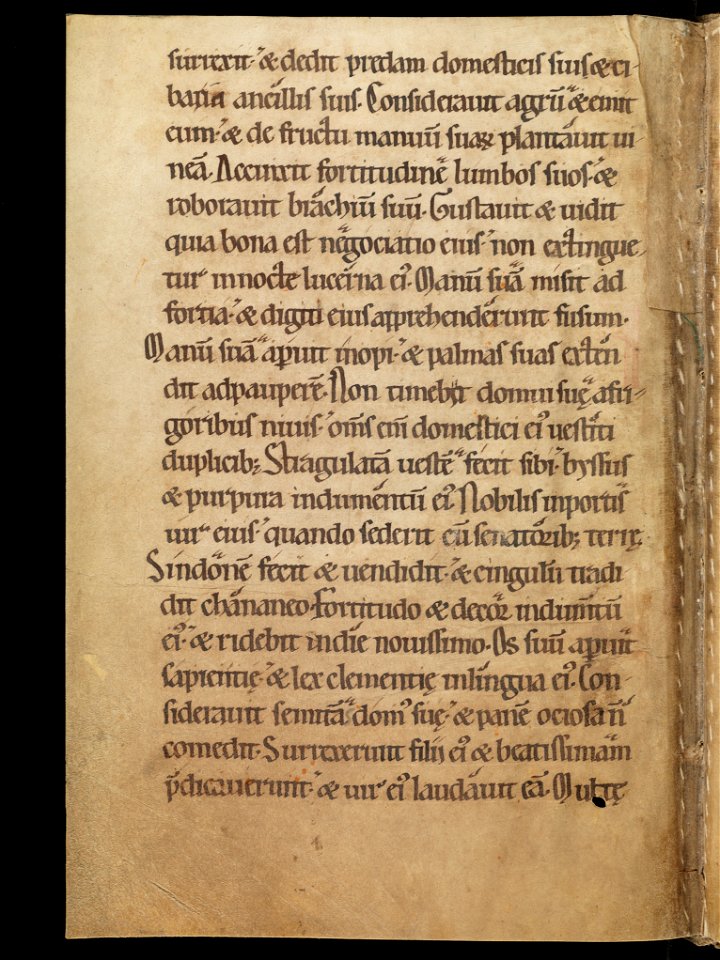 surrexit · & dedit predam domesticis suis & ci-
baria ancillis suis. Considerauit agrū & emit
eum · & de fructu manuū suaꝝ plantauit ui-
neā. Accinxit fortitudinē lumbos suos · &
roborauit brachiū suū. Gustauit & uidit
quia bona est negociatio eius · non extingue-
tur in nocte lucerna ei᾽. Manū suā misit ad
fortia · & digiti eius apprehenderunt fusum.
Manū suā aperuit inopi · & palmas suas exten
dit ad pauperē. Non timebit domui suę a fri-
goribus niuis · om̄s eni domestici ei᾽ uestiti
duplicib; Stragulatā uestē fecit sibi · byssus
& purpura indumentū ei᾽. Nobilis in portis
uir eius · quando sederit cū senatorib; terrę.
Sindonē fecit & uendidit · & cingulū tradi
dit chananeo. Fortitudo & decor indum̄tū
ei᾽ · & ridebit in die nouissimo. Os suū aperuit
sapientię · & lex clementię in lingua ei᾽. Con-
siderauit semitā dom᾽ suę · & panē ociosa n̄
comedit. Surrexerunt filii ei᾽ & beatissimam
p̄dicauerunt · & uir ei᾽ laudauit eā. Multę